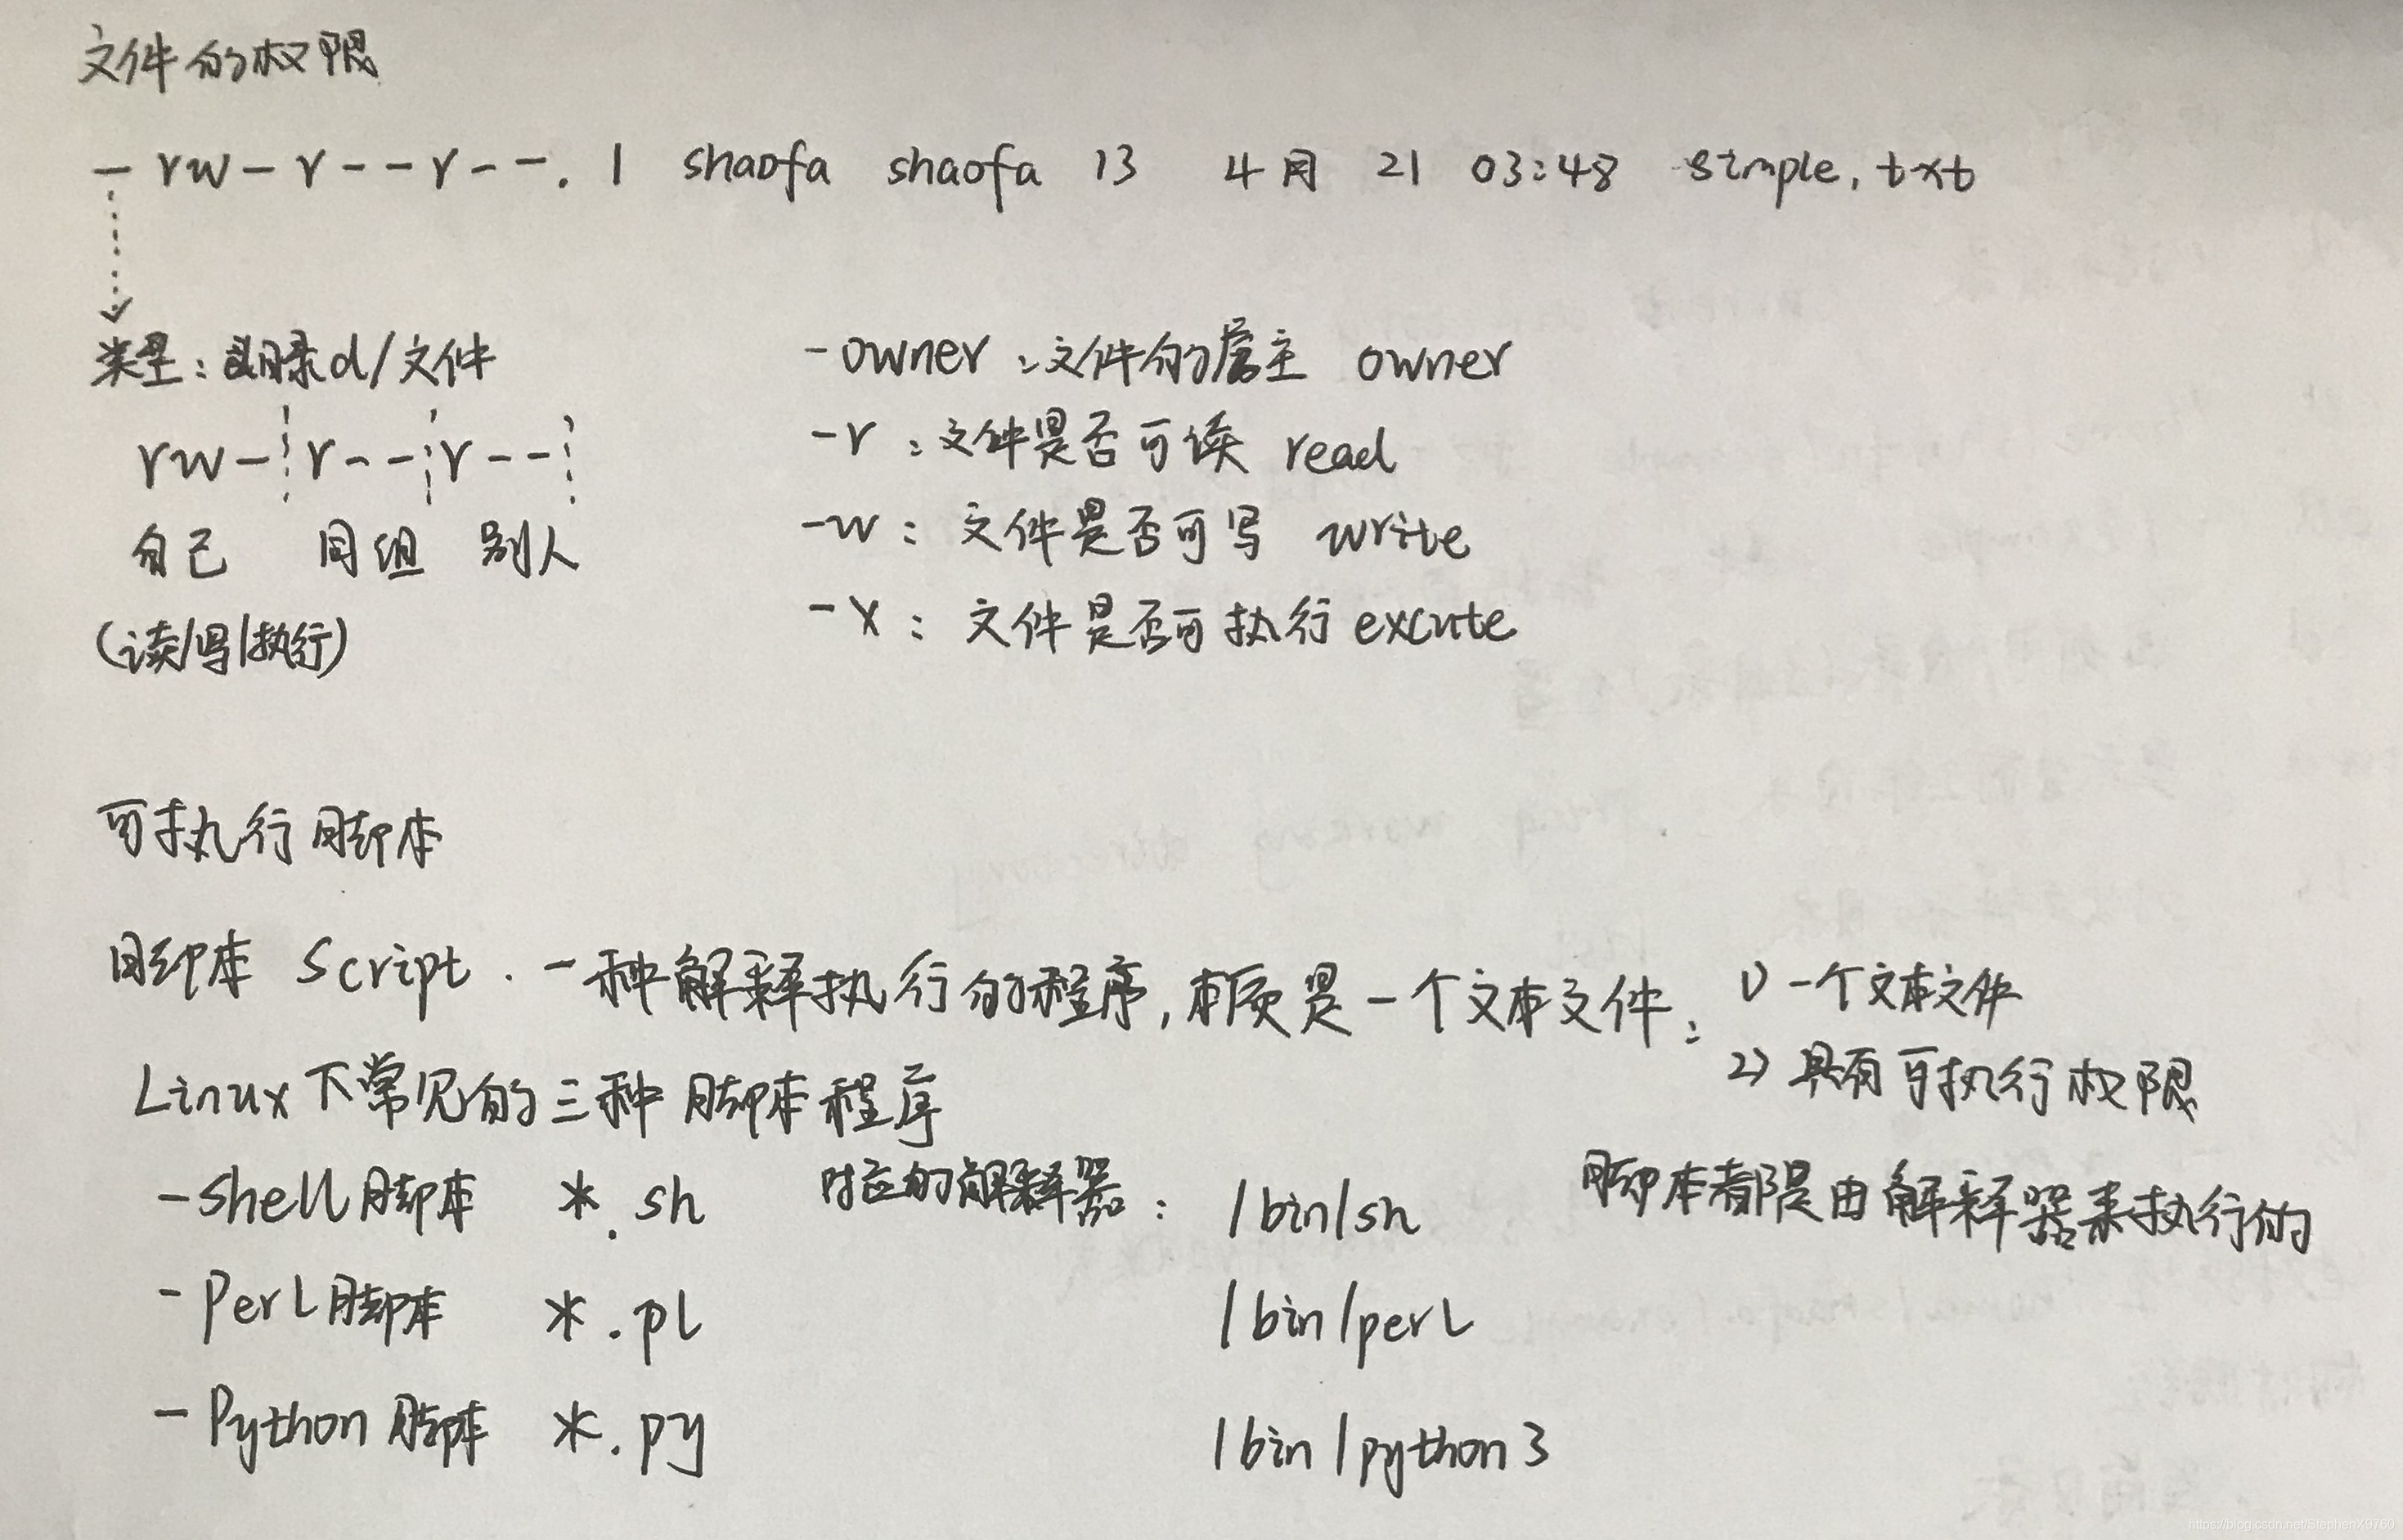 文件的权限
-rw-r--r--. 1 shaofa shaofa 13 4月 21 03:48 simple.txt
类型：目录d/文件
rw-┆r--┆r--┆
自己 同组 别人
(读/写/执行)
-owner：文件的属主 owner
-r：文件是否可读 read
-w：文件是否可写 write
-x：文件是否可执行 excute
可执行脚本
脚本 Script . 一种解释执行的程序,本质是一个文本文件：
1) 一个文本文件
2) 具有可执行权限
Linux下常见的三种脚本程序
-shell脚本 *.sh 对应的解释器：/bin/sh
脚本都是由解释器来执行的
-Perl脚本 *.pl /bin/perl
-Python脚本 *.py /bin/python3
https://blog.csdn.net/StephenX9760